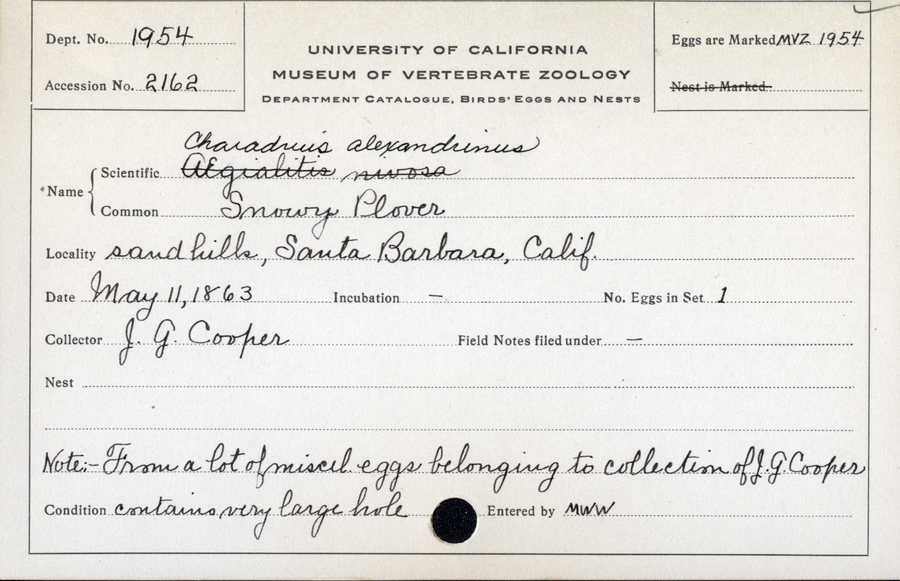 Dept. No. 1954
Accession No. 2162
UNIVERSITY OF CALIFORNIA
MUSEUM OF VERTEBRATE ZOOLOGY
DEPARTMENT CATALOGUE, BIRDS' EGGS AND NESTS
Eggs are Marked MVZ 1954
Nest is Marked
Charadrius alexandrinus
*Name Scientific Ægialitis nivosa
Common Snowy Plover
Locality sandhills, Santa Barbara, Calif.
Date May 11, 1863 Incubation — No. Eggs in Set 1
Collector J. G. Cooper Field Notes filed under —
Nest
Note:- From a lot of miscel. eggs belonging to collection of J.G. Cooper
Condition contains very large hole Entered by MWW